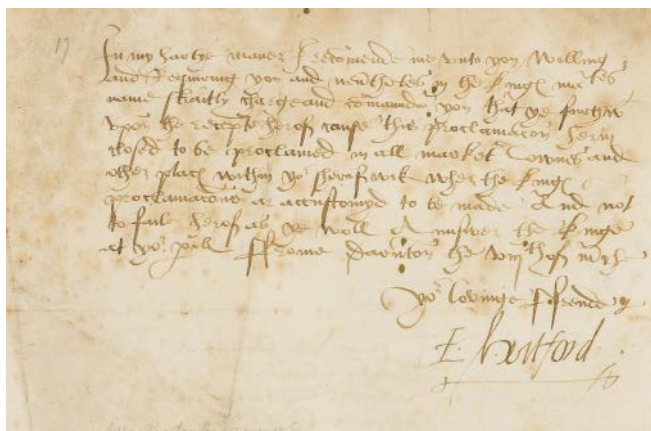 17
In my hartye maner I recomende me unto you Willing
and Requiring you and nevtheles in the kings maties
name straitly charge and comaunde you that ye furthw
upon the recepte herof cause this proclamacon herin
closed to be proclamed in all market Townes and
other places within yor sherifwik wher the kings
proclamacons ar accustomyd to be made And not
to faile herof as ye woll Answer the kinge
at yor pill ffrome the of
yor lovinge ffrende
E. Hertford